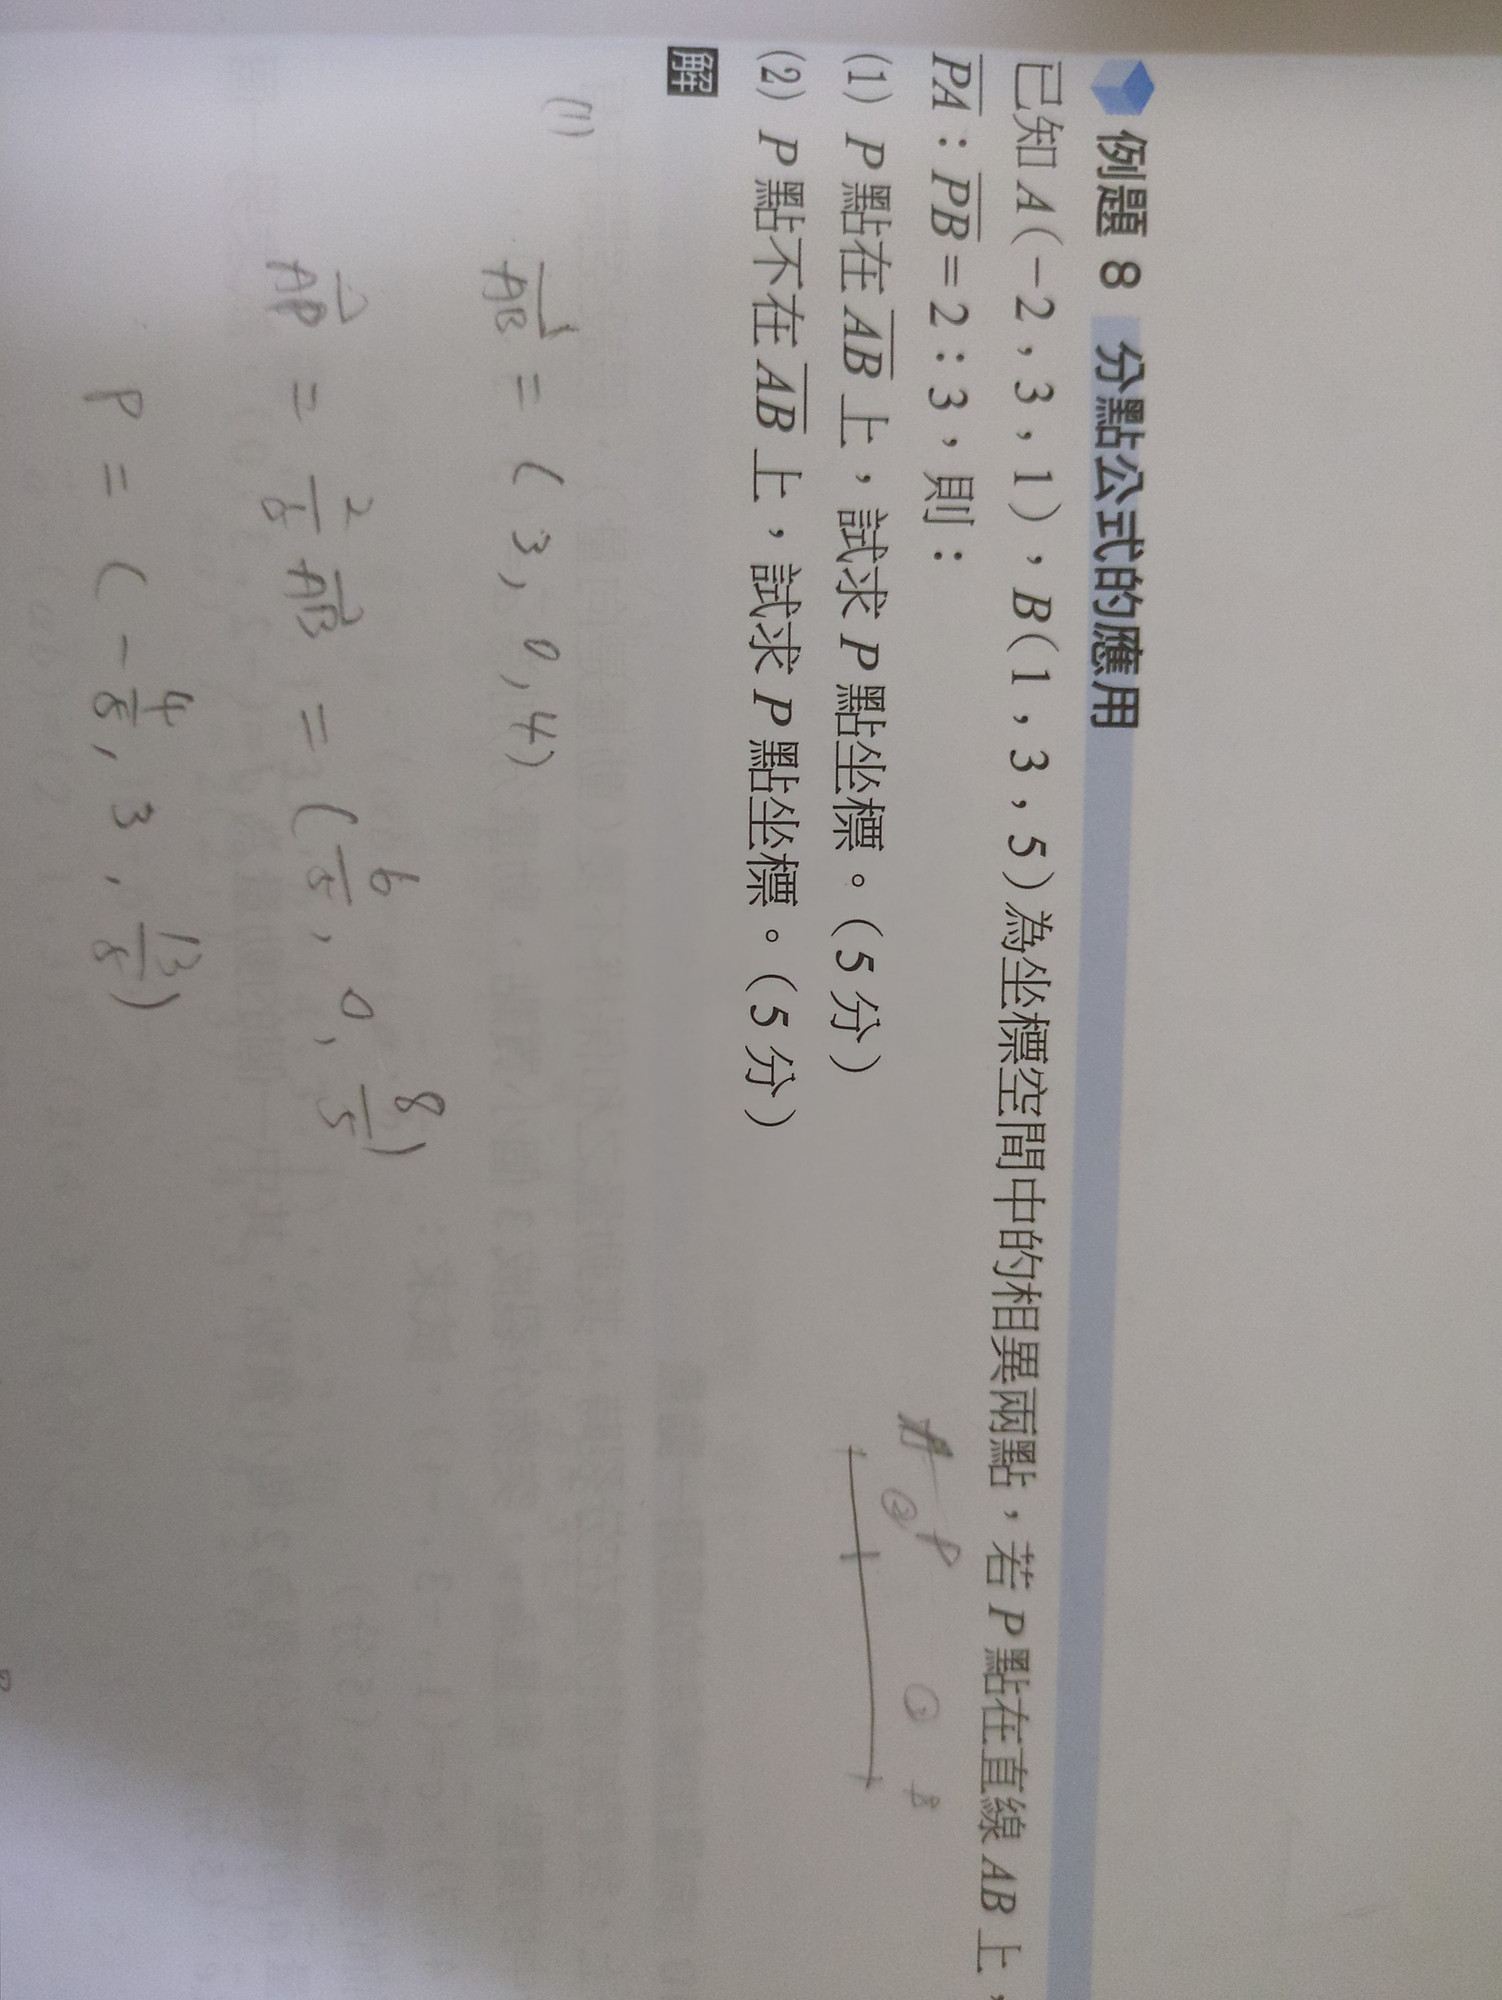 例題 8 分點公式的應用
已知 A(-2,3,1),B(1,3,5)為坐標空間中的相異兩點,若 P 點在直線 AB 上,
PA:PB=2:3,則:
(1) P 點在 AB 上,試求 P 點坐標。(5 分)
(2) P 點不在 AB 上,試求 P 點坐標。(5 分)
P
②
B
解
(1)
AB = (3, 0, 4)
AP = 2/5 AB = (6/5, 0, 8/5)
P = (-4/5, 3, 13/5)